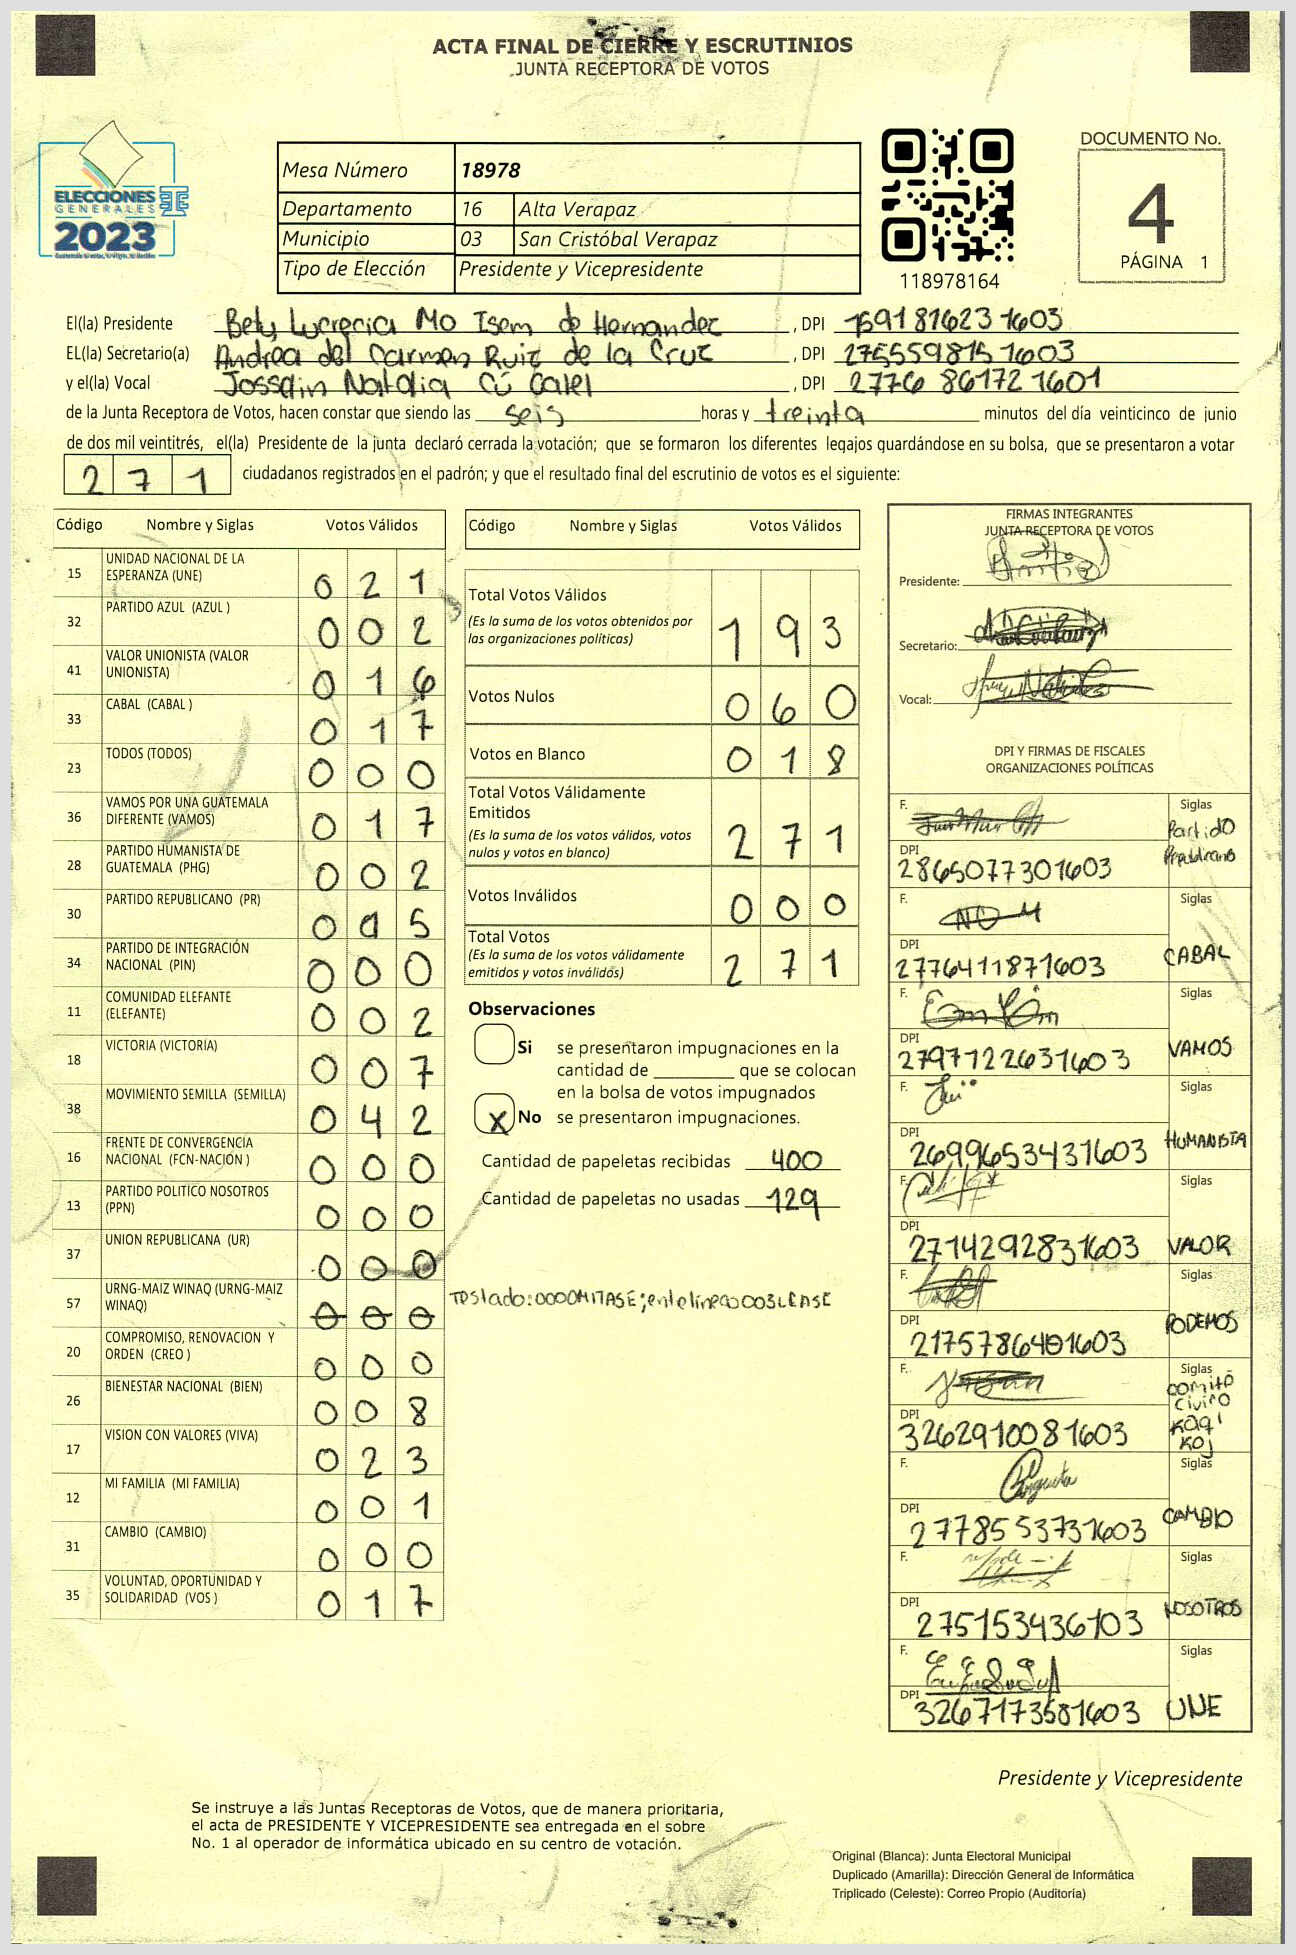 ACTA FINAL DE CIERRE Y ESCRUTINIOS
JUNTA RECEPTORA DE VOTOS
ELECCIONES
GENERALES
2023
Mesa Número 18978
Departamento 16 Alta Verapaz
Municipio 03 San Cristóbal Verapaz
Tipo de Elección Presidente y Vicepresidente
118978164
DOCUMENTO No.
4
PÁGINA 1
El(la) Presidente Bety Lucrecia Mo Isem de Hernandez, DPI 1591816231603
EL(la) Secretario(a) Andrea del Carmen Ruiz de la Cruz, DPI 2755598151603
y el(la) Vocal Josselin Natalia Cú Calel, DPI 2776 86172 1601
de la Junta Receptora de Votos, hacen constar que siendo las seis horas y treinta minutos del día veinticinco de junio
de dos mil veintitrés, el(la) Presidente de la junta declaró cerrada la votación; que se formaron los diferentes legajos guardándose en su bolsa, que se presentaron a votar
271 ciudadanos registrados en el padrón; y que el resultado final del escrutinio de votos es el siguiente:
Código Nombre y Siglas Votos Válidos
15 UNIDAD NACIONAL DE LA ESPERANZA (UNE) 021
32 PARTIDO AZUL (AZUL ) 002
41 VALOR UNIONISTA (VALOR UNIONISTA) 016
33 CABAL (CABAL ) 017
23 TODOS (TODOS) 000
36 VAMOS POR UNA GUATEMALA DIFERENTE (VAMOS) 017
28 PARTIDO HUMANISTA DE GUATEMALA (PHG) 002
30 PARTIDO REPUBLICANO (PR) 015
34 PARTIDO DE INTEGRACIÓN NACIONAL (PIN) 000
11 COMUNIDAD ELEFANTE (ELEFANTE) 002
18 VICTORIA (VICTORIA) 007
38 MOVIMIENTO SEMILLA (SEMILLA) 042
16 FRENTE DE CONVERGENCIA NACIONAL (FCN-NACION ) 000
13 PARTIDO POLITICO NOSOTROS (PPN) 000
37 UNION REPUBLICANA (UR) 000
57 URNG-MAIZ WINAQ (URNG-MAIZ WINAQ) 000
20 COMPROMISO, RENOVACION Y ORDEN (CREO ) 000
26 BIENESTAR NACIONAL (BIEN) 008
17 VISION CON VALORES (VIVA) 023
12 MI FAMILIA (MI FAMILIA) 001
31 CAMBIO (CAMBIO) 000
35 VOLUNTAD, OPORTUNIDAD Y SOLIDARIDAD (VOS ) 017
Código Nombre y Siglas Votos Válidos
Total Votos Válidos
(Es la suma de los votos obtenidos por
las organizaciones políticas) 193
Votos Nulos 060
Votos en Blanco 018
Total Votos Válidamente
Emitidos
(Es la suma de los votos válidos, votos
nulos y votos en blanco) 271
Votos Inválidos 000
Total Votos
(Es la suma de los votos válidamente
emitidos y votos inválidos) 271
Observaciones
Si se presentaron impugnaciones en la
cantidad de ________ que se colocan
en la bolsa de votos impugnados
X No se presentaron impugnaciones.
Cantidad de papeletas recibidas 400
Cantidad de papeletas no usadas 129
Testado: 000
FIRMAS INTEGRANTES
JUNTA RECEPTORA DE VOTOS
Presidente:
Secretario:
Vocal:
DPI Y FIRMAS DE FISCALES
ORGANIZACIONES POLÍTICAS
F. Siglas Partido Republicano
DPI 2865077301603
F. Siglas CABAL
DPI 2776411871603
F. Siglas VAMOS
DPI 2797122631603
F. Siglas HUMANISTA
DPI 2699653431603
F. Siglas VALOR
DPI 2714292831603
F. Siglas PODEMOS
DPI 2175786401603
F. Siglas comité civico
DPI 3262910081603
F. Siglas CAMBIO
DPI 2778553731603
F. Siglas NOSOTROS
DPI 275153436103
F. Siglas UNE
DPI 3267173581603
Presidente y Vicepresidente
Se instruye a las Juntas Receptoras de Votos, que de manera prioritaria,
el acta de PRESIDENTE Y VICEPRESIDENTE sea entregada en el sobre
No. 1 al operador de informática ubicado en su centro de votación.
Original (Blanca): Junta Electoral Municipal
Duplicado (Amarilla): Dirección General de Informática
Triplicado (Celeste): Correo Propio (Auditoría)